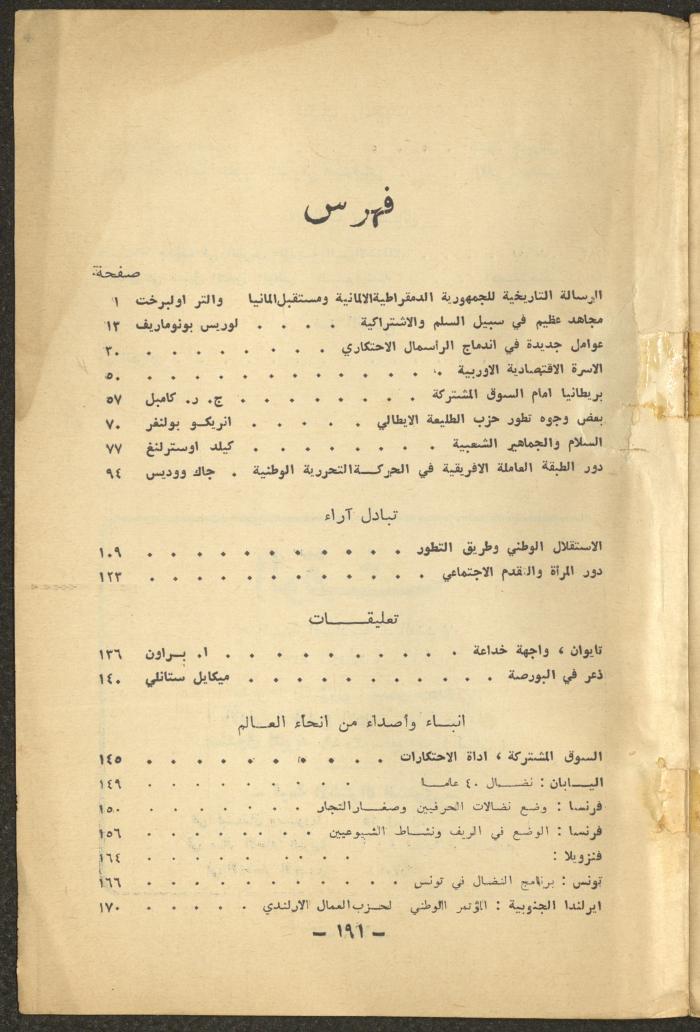 فهرس
صفحة
الرسالة التاريخية للجمهورية الدمقراطية الالمانية ومستقبل المانيا والتر اولبرخت ١
مجاهد عظيم في سبيل السلم والاشتراكية . . . . لوريس بونوماريف ١٣
عوامل جديدة في اندماج الرأسمال الاحتكاري . . . . . . . . ٣٠
الاسرة الاقتصادية الاوربية . . . . . . . . . . . . . ٥٠
بريطانيا امام السوق المشتركة . . . . . . . . ج. ر. كامبل ٥٧
بعض وجوه تطور حزب الطليعة الايطالي . . . . . انريكو بولنغر ٧٠
السلام والجماهير الشعبية . . . . . . . . كيلد اوسترلنغ ٧٧
دور الطبقة العاملة الافريقية في الحركة التحررية الوطنية . جاك ووديس ٩٤
تبادل آراء
الاستقلال الوطني وطريق التطور . . . . . . . . . . . ١٠٩
دور المرأة والتقدم الاجتماعي . . . . . . . . . . . . ١٢٣
تعليقـــــات
تايوان ، واجهة خداعة . . . . . . . . . . ا. بـراون ١٣٦
ذعر في البورصة . . . . . . . . . . . ميكايل ستانلي ١٤٠
انبـاء وأصداء من انحاء العالم
السوق المشتركة ، اداة الاحتكارات . . . . . . . . . . ١٤٥
اليـابان : نضـال ٤٠ عامـا . . . . . . . . . . ١٤٩
فرنسا : وضع نضالات الحرفيين وصغار التجار . . . . . . . ١٥٠
فرنسا : الوضع في الريف ونشاط الشيوعيين . . . . . . . . ١٥٦
فنزويلا : . . . . . . . . . . ١٦٤
تونس : برنامج النضال في تونس . . . . . . . . . . . ١٦٦
ايرلندا الجنوبية : المؤتمر الوطني لحزب العمال الارلندي . . . . . ١٧٠
– ١٩١ –